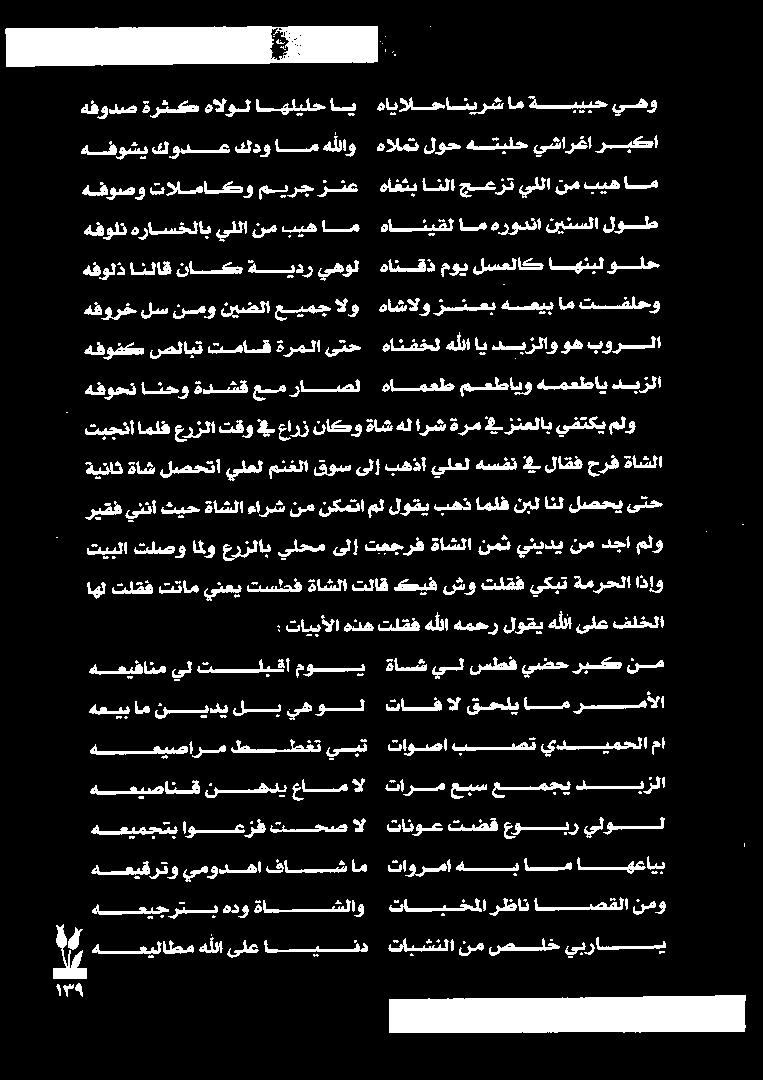 وهي حبيبة ما شريناحلاياه يا حليلها لولاه كثرة صدوفه
اكبر اغراشي حلبته حول تملاه والله ما ودك عدوك يشوفه
ما هيب من اللي تزعج النا بثغاه عنز جريم وكاملات وصوفه
طول السنين اندوره ما لقيناه ما هيب من اللي بالخساره نلوفه
حلو لبنها كالعسل يوم ذقناه لوهي ردية كان قالنا ذلوفه
وحلفت ما بيعه بعنز ولاشاه ولا جميع الضين ومن سل خروفه
الروب هو والزبد يا الله لخفناه حتى المرة قامت تبالص كفوفه
الزبد ياطعمه وياطعم طعماه لصار مع قشدة وحنا نحوفه
ولم يكتفي بالعنز في مرة شرا له شاة وكان زراع في وقت الزرع فلما أنجبت
الشاة فرح فقال في نفسه لعلي أذهب إلى سوق الغنم لعلي أتحصل شاة ثانية
حتى يحصل لنا لبن فلما ذهب يقول لم اتمكن من شراء الشاة حيث أنني فقير
ولم اجد من يديني ثمن الشاة فرجعت إلى محلي بالزرع ولما وصلت البيت
وإذا الحرمة تبكي فقلت وش فيك قالت الشاة فطست يعني ماتت فقلت لها
الخلف على الله يقول رحمه الله فقلت هذه الأبيات :
من كبر حضي فطس لي شاة يوم أقبلت لي منافيعه
الأمر ما يلحق لا فات لو هي بل يدين ما بيعه
ام الحميدي تصب اصوات تبي تغطط مراصيعه
الزبد يجمع سبع مرات لا ماع يدهن قناصيعه
لولي ربوع قضت عونات لا صحت فزعوا بتجميعه
بياعها ما به امروات ما شاف اهدومي وترقيعه
ومن القصا ناظر المخبات والشاة وده بترجيعه
ياربي خلص من النشبات دنيا على الله مطاليعه
١٣٩